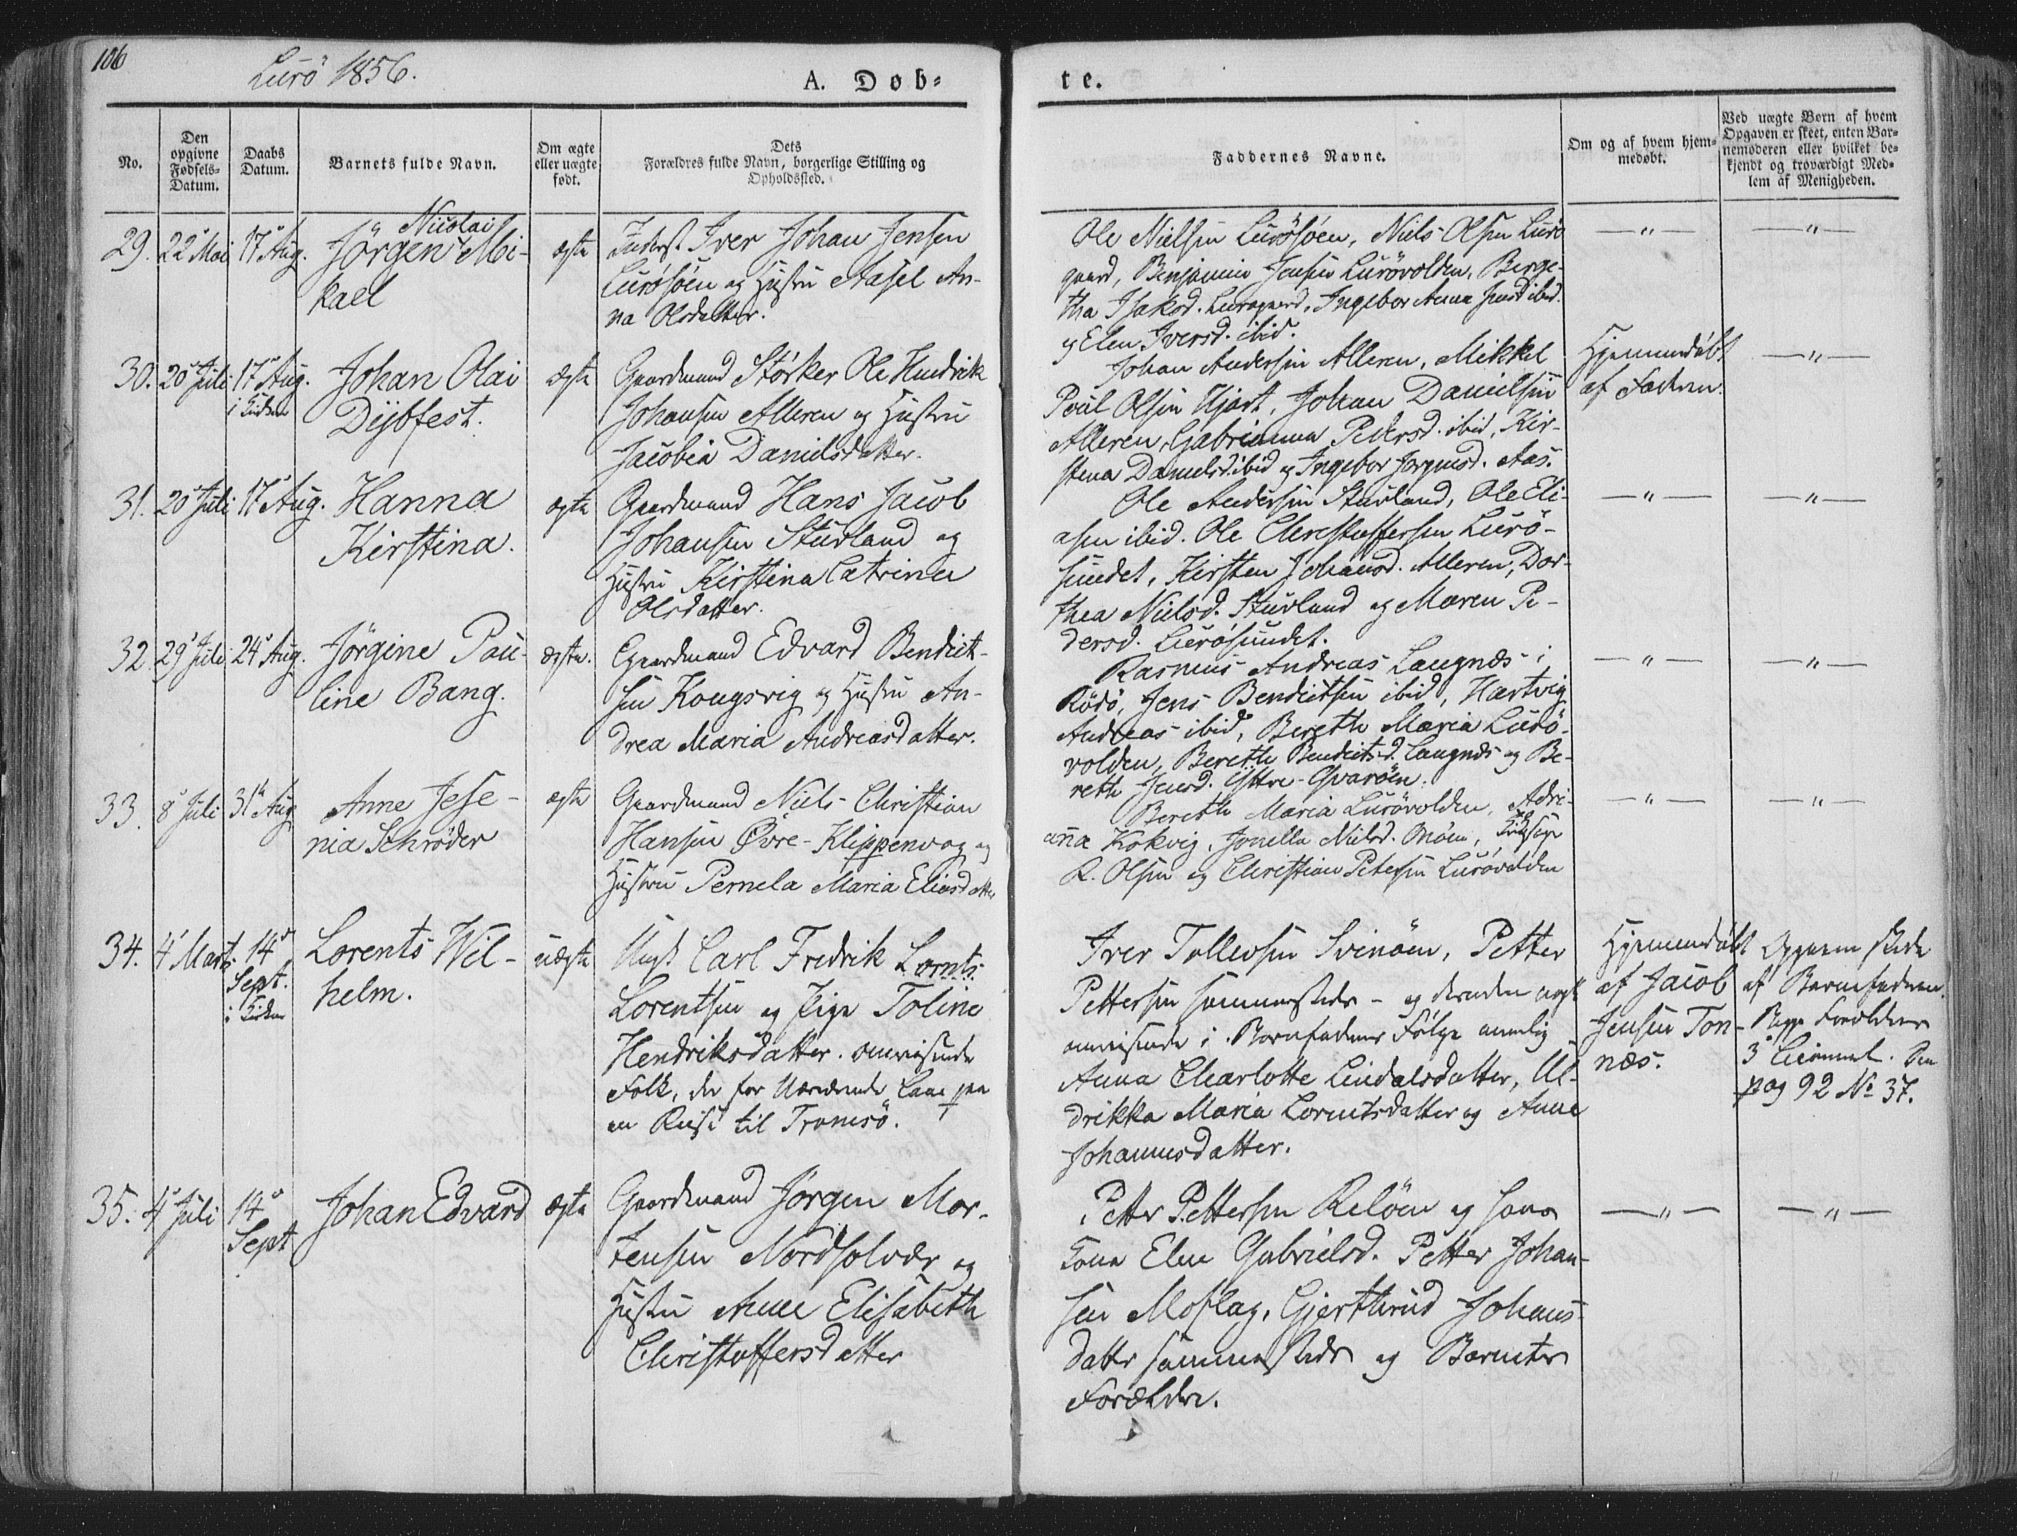 106
Lurö 1856.
A. Døb-
te.
No.
Den opgivne Fødsels-Datum.
Daabs Datum.
Barnets fulde Navn.
Om ægte eller uægte født.
Dets Forældres fulde Navn, borgerlige Stilling og Opholdssted.
Faddernes Navne.
Om og af hvem hjemmedøbt.
Ved uægte Børn af hvem Opgaven er skeet, enten Barnemoderen eller hvilket bekjendt og troværdigt Medlem af Menigheden.
29. 22 Mai 17 Aug.
Nicolai
Jörgen Mi-
kael
ægte
Inderst Iver Johan Jensen
Luröföen og Hustru Aasel An-
na Olsdatter.
Ole Nielsen Luröföen, Niels Olsen Lurö
gaard, Benjamin Jensen Lurövolden, Berge-
tha Isaksd. Lurögaard, Ingebor Anna Jensd ibid.
og Elen Iversd. ibid.
— " —
— " —
30. 20 Juli 17 Aug.
i Kirken
Johan Olai
Dybfest.
ægte
Gaardmand Störker Ole Hendrik
Johansen Alleren og Hustru
Jacobia Danielsdatter.
Johan Andersen Alleren, Mikkel
Poul Olsen Hjart, Johan Danielsen
Alleren, Gabrianna Pedersd. ibid, Kir-
stena Danielsd. ibid og Ingebor Jörgensd. Aas.
Hjemmedöbt
af Faderen.
— " —
31. 20 Juli 17 Aug.
Hanna
Kirstina.
ægte
Gaardmand Hans Jacob
Johansen Stuvland og
Hustru Kirstina Catrina
Olsdatter.
Ole Andersen Stuvland, Ole Eli-
asen ibid. Ole Christoffersen Lurö-
sundet, Kirsten Johansd. Alleren, Dor-
thea Nielsd. Stuvland og Maren Pe-
dersd. Lurösundet.
— " —
— " —
32. 29 Juli 24 Aug.
Jörgine Pou-
line Bang.
ægte.
Gaardmand Edvard Bendict-
sen Kongsvig og Hustru An-
drea Maria Andreasdatter.
Rasmus Andreas Langnæs i
Rödö, Jens Bendictsen ibid, Hartvig
Andreas ibid, Bereth Maria Lurö-
volden, Bereth Bendictsd. Langnæs og Be-
reth Jensd. Yttre-Qvaröen.
— " —
— " —
33. 8 Juli 31 Aug
Anne Jese-
nia Schröder
ægte
Gaardmand Niels Christian
Hansen Övre-Klippenvag og
Hustru Pernela Maria Eliasdatter
Bereth Maria Lurövolden, Adri-
anna Kokvig, Jonella Nielsd.
R. Olsen og Christian Petersen Lurövolden
— " —
— " —
34. 4 Marts 14
Sept.
i Kirken
Lorents Wil-
helm.
uægte
Ungk. Carl Fredrik Lornts
Lorentsen og Pige Toline
Hendriksdatter. omreisende
Folk, der for Nærværende Laae paa
en Reise til Tromsö.
Iver Tollevsen Svinöen, Petter
Pettersen sammesteds - og desuden
omreisende i Barnefaderens Fölge nemlig
Anna Charlotte Lindalsdatter, Ul-
drikka Maria Lorentsdatter og Anne
Johannesdatter.
Hjemmedöbt
af Jacob
Jensen Ton-
næs.
Opgaven skede
af Barnefaderen.
Begge Forældres
3
pag 92 No 37.
35. 4 Juli 14
Sept
Johan Edvard
ægte
Gaardmand Jörgen Mor-
tensen Nordsolvær og
Hustru Anne Elisabeth
Christoffersdatter
Petter Pettersen Relöen og hans
Kone Elen Gabrielsd. Petter Johan-
sen Moflag, Gjerthrud Johans-
datter sammesteds og Barnets
Forældre.
— " —
— " —